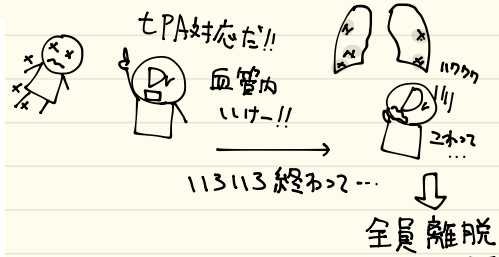 tPA対応だ!!
Dr
血管内
いけー!!
いろいろ終わって…
Dr
ハワワワ
これって
…
全員離脱